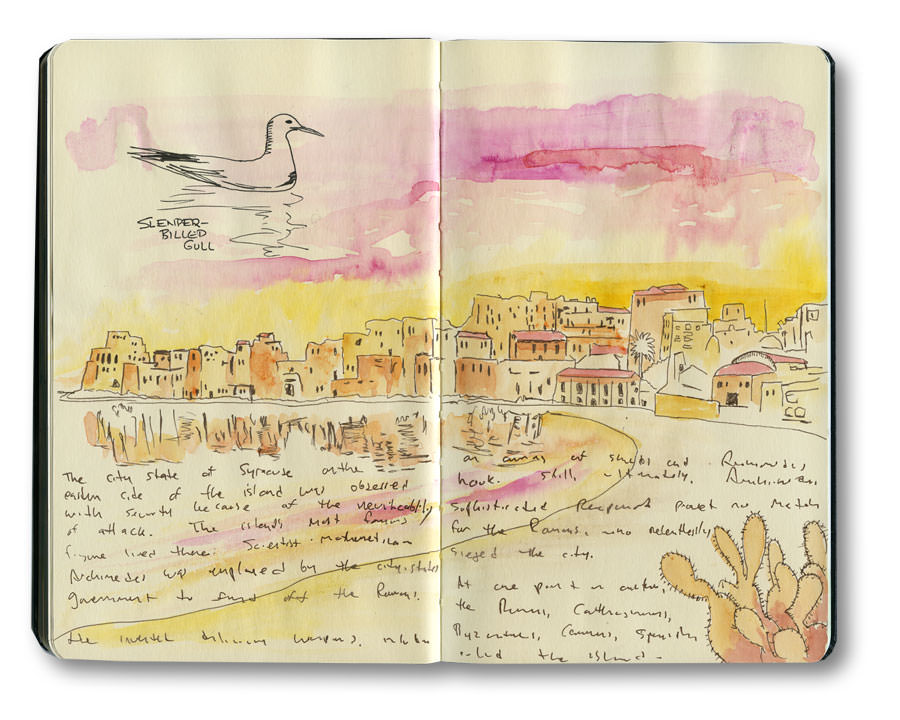 SLENDER-
BILLED
GULL
The city state of Syracuse on the
eastern side of the island was obsessed
with security because of the inevitability
of attack. The island's most famous
figure lived there: Scientist-Mathematician
Archimedes was employed by the city-state's
government to fend off the Romans.
He invented weapons,
an army of and
hook. Still, ultimately, Archimedes
sophisticated proved no match
for the Romans, who relentlessly
sieged the city.
At one point or another,
the Romans, Carthaginians,
Byzantines, Spanish
ruled the island.